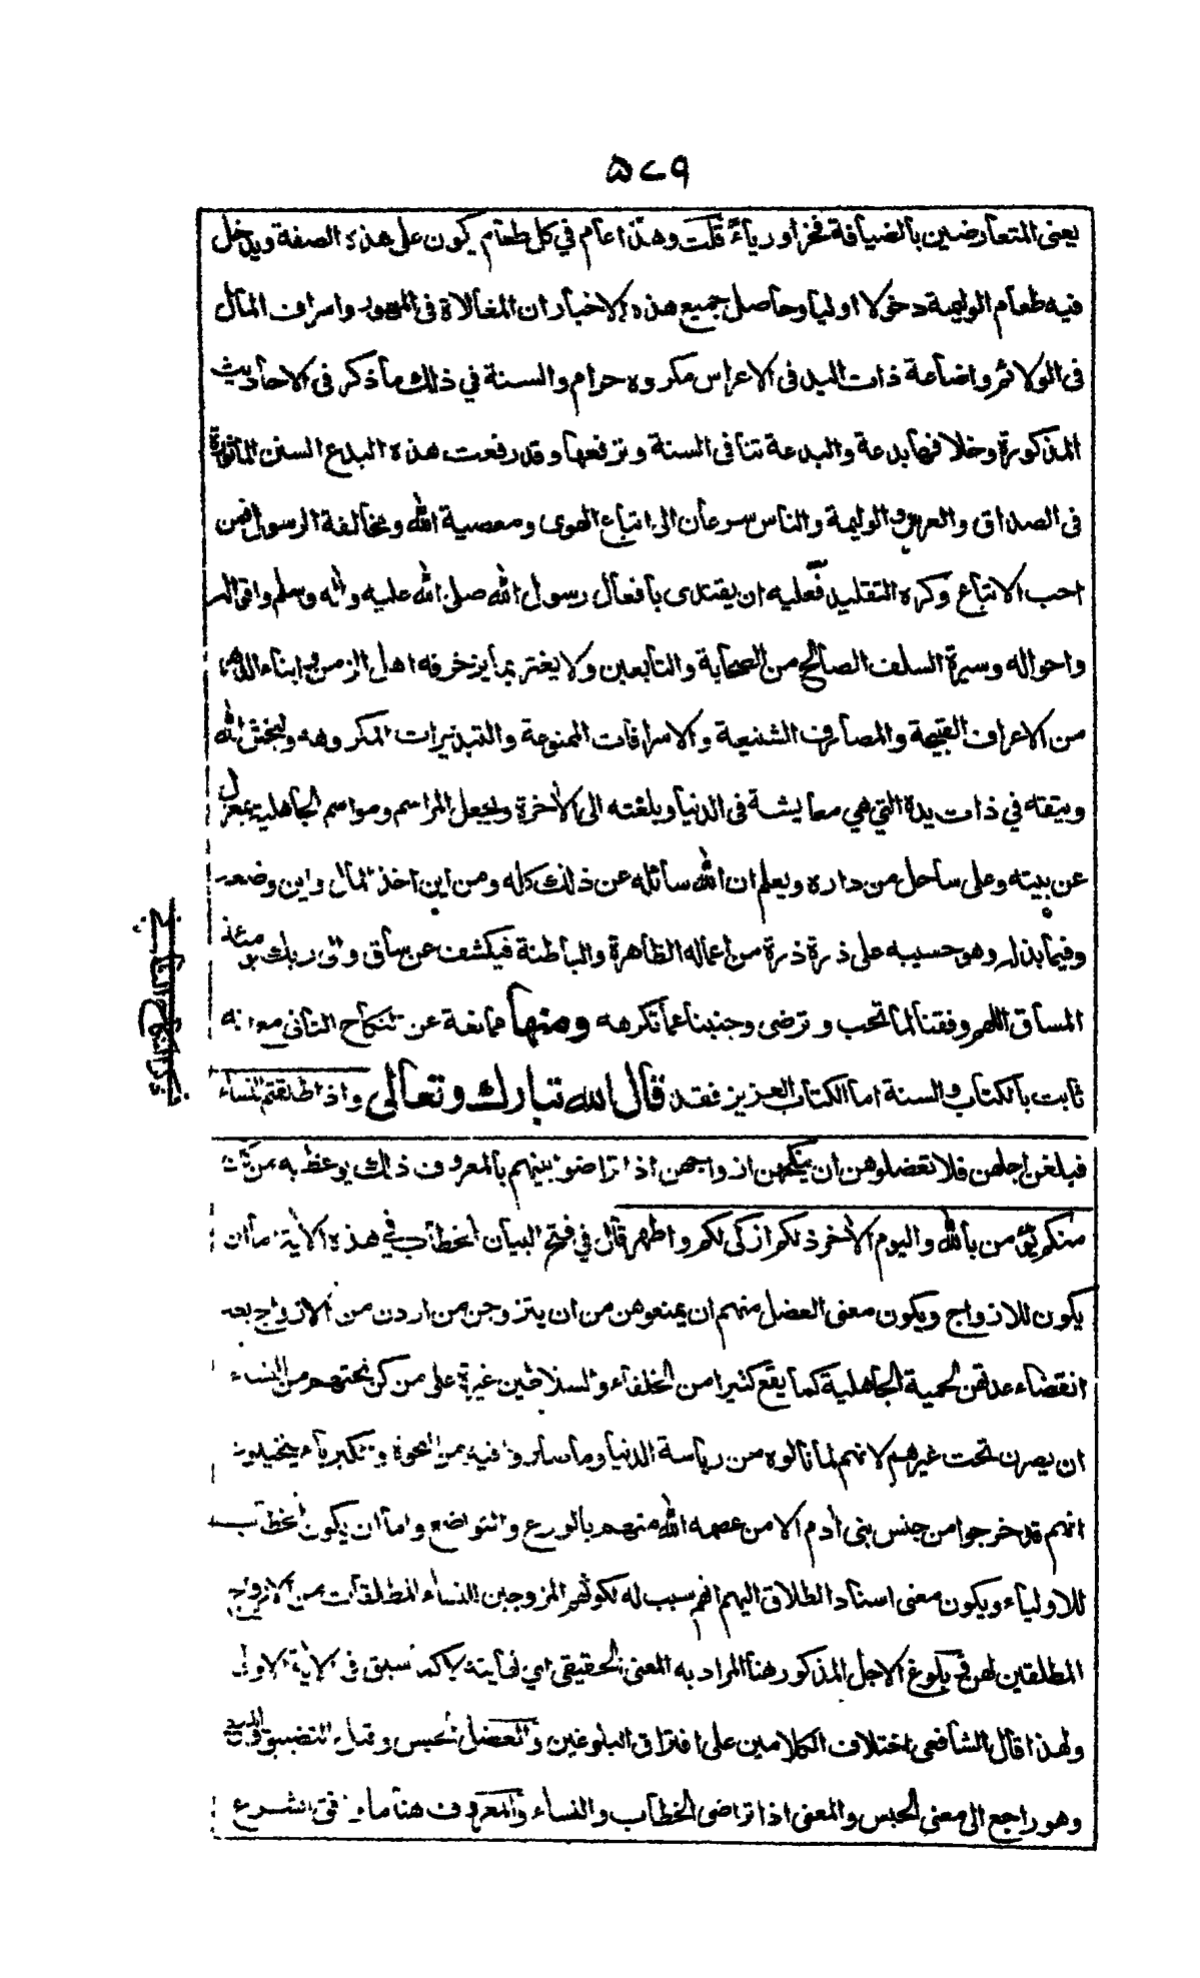 ٥٧٩
يعنى المتعارضين بالضيافة فخرا ورياء قلت وهذا عام في كل طعام يكون على هذه الصفة ويدخل
فيه طعام الوليمة دخولا اوليا وحاصل جميع هذه الاخبار ان المغالاة فى المهور واسراف المال
فى الولائم واضاعة ذات اليد فى الاعراس مكروه حرام والسنة في ذلك ما ذكر فى الاحاديث
المذكورة وخلافها بدعة والبدعة تنافى السنة وترفعها وقد رفعت هذه البدع السنن الماثورة
فى الصداق والعرس والوليمة والناس سرعان الى اتباع الهوى ومعصية الله ومخالفة الرسول فمن
احب الاتباع وكره التقليد فعليه ان يقتدى بافعال رسول الله صلى الله عليه واله وسلم واقواله
واحواله وسيرة السلف الصالح من الصحابة والتابعين ولا يغتر بما يزخرفه اهل الزمن وابناء الدهر
من الاعراف القبيحة والمصارف الشنيعة والاسرافات الممنوعة والتبذيرات المكروهه وليخش الله
ويتقه في ذات يده التي هي معايشة فى الدنيا وبلغته الى الأخرة وليجعل المراسم ومواسم الجاهلية بمعزل
عن بيته وعلى ساحل من داره ويعلم ان الله سائله عن ذلك كله ومن اين اخذ المال واين وضعه
وفيما بذله وهو حسيبه على ذرة ذرة من اعماله الظاهرة والباطنة فيكشف عن ساق والى ربك يومئذ
المساق اللهم وفقنا لما تحب وترضى وجنبنا عما تكرهه ومنها ممانعة عن النكاح الثانى مع انه
ثابت بالكتاب والسنة اما الكتاب العزيز فقد قال الله تبارك وتعالى واذا طلقتم النساء
فبلغن اجلهن فلا تعضلوهن ان ينكحن ازواجهن اذا تراضوا بينهم بالمعروف ذلك يوعظ به من كان
منكم يؤمن بالله واليوم الأخر ذلكم ازكى لكم واطهر قال في فتح البيان الخطاب في هذه الأية اما ان
يكون للازواج ويكون معنى العضل منهم ان يمنعوهن من ان يتزوجن من اردن من الازواج بعد
انقضاء عدتهن لحمية الجاهلية كما يقع كثيرا من الخلفاء والسلاطين غيرة على من كن تحتهم من النساء
ان يصرن تحت غيرهم لانهم لما نالوه من رياسة الدنيا وما صاروا فيه من النخوة والكبرياء يتخيلون
انهم قد خرجوا من جنس بنى أدم الا من عصمه الله منهم بالورع والتواضع واما ان يكون الخطاب
للاولياء ويكون معنى اسناد الطلاق اليهم انهم سبب له لكونهم المزوجين النساء المطلقات من الازواج
المطلقين لهن في بلوغ الاجل المذكور هنا المراد به المعنى الحقيقى اي نهايته لا كما سبق فى الأية الاولى
ولهذا قال الشافعى اختلاف الكلامين على افتراق البلوغين والعضل الحبس وقيل التضييق والمنع
وهو راجع الى معنى الحبس والمعنى اذا تراضى الخطاب والنساء والمعروف هنا ما وافق الشرع
ذكر النكاح الثانى